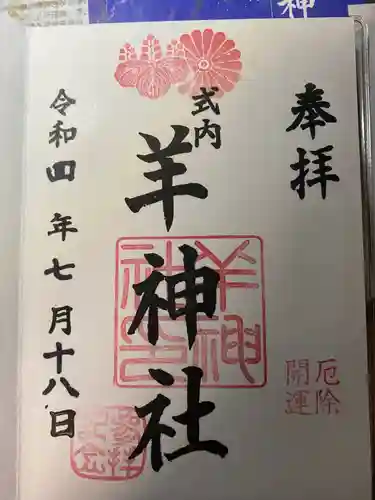 奉拝
式内
羊神社
令和四年七月十八日
厄除
開運
羊神
社印
神